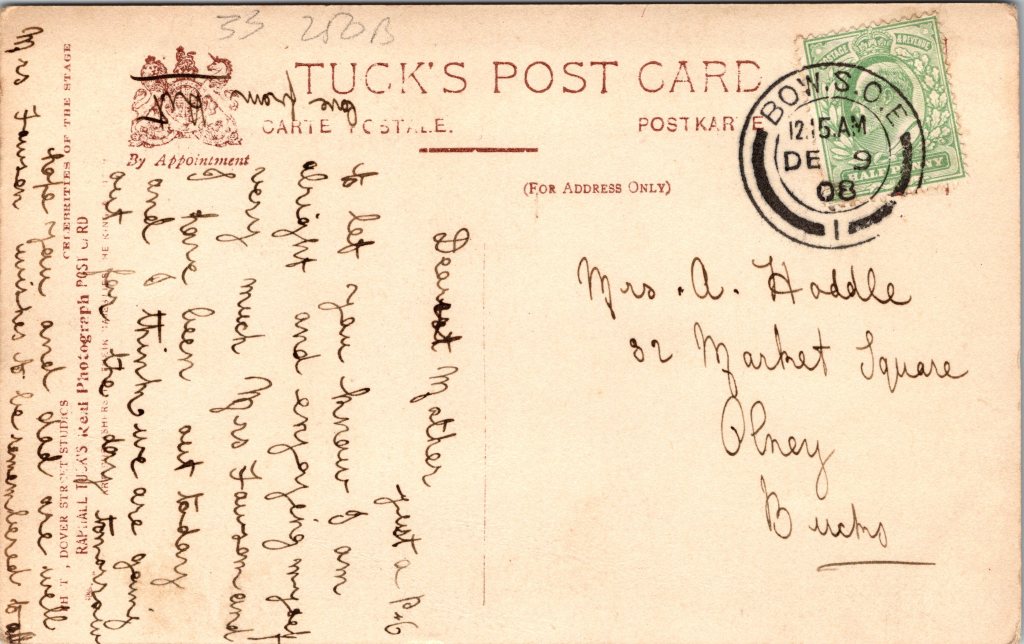 33 25DB
TUCK'S POST CARD
CARTE POSTALE.
POSTKARTE
By Appointment
(FOR ADDRESS ONLY)
POSTAGE & REVENUE
HALFPENNY
BOW. S.O. E
12.15.AM
DE 9
08
1
Mrs. A. Hoddle
32 Market Square
Olney
Bucks
Dearest Mother
just a P.C
to let you know I am
alright and enjoying myself
very much Mrs Fawson and
I have been out today
and I think we are going
out for the day tomorrow
hope you and dad are well
Mrs Fawson wishes to be remembered to all
from
CELEBRITIES OF THE STAGE
RAPHAEL TUCK'S Real Photograph POST CARD
DOVER STREET STUDIOS